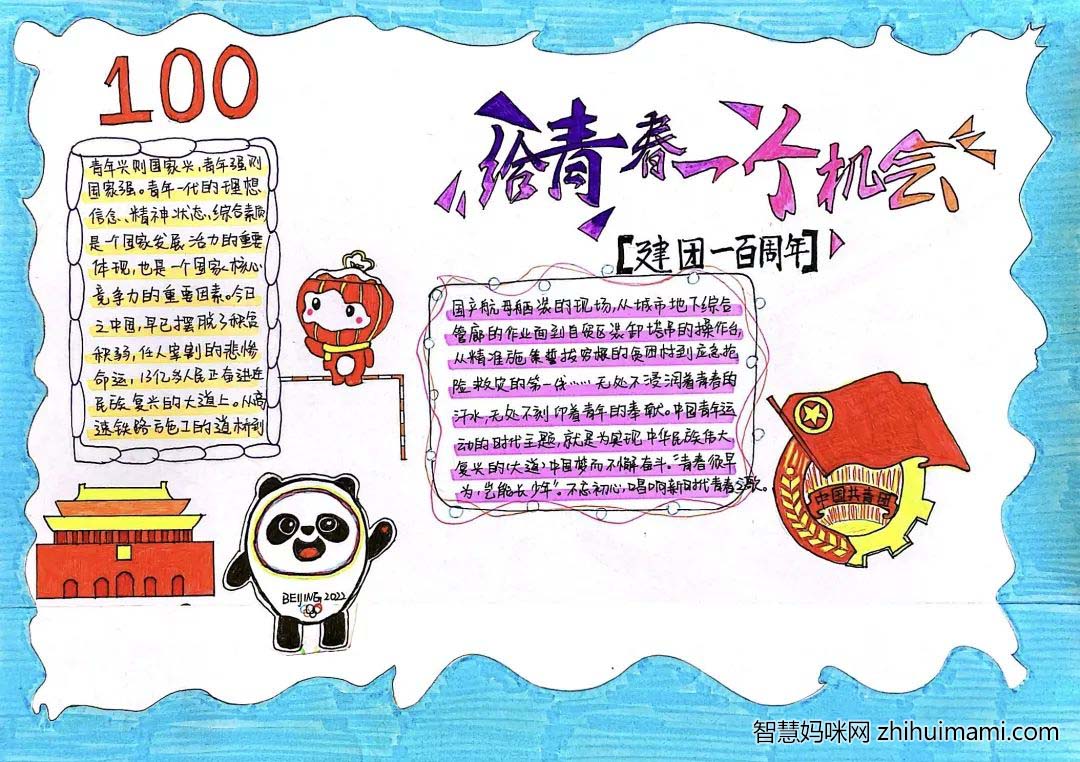 100
给青春一个机会
[建团一百周年]
青年兴则国家兴,青年强则
国家强。青年一代的理想
信念、精神状态,综合素质
是一个国家发展活力的重要
体现,也是一个国家核心
竞争力的重要因素。今日
之中国,早已摆脱了积贫
积弱,任人宰割的悲惨
命运,13亿多人民正奋进在
民族复兴的大道上。从高
速铁路施工的道桥到
国产航母舾装的现场,从城市地下综合
管廊的作业面到自贸区装卸塔吊的操作台,
从精准施策拔穷根的贫困村到应急抢
险救灾的第一线……无处不浸润着青春的
汗水,无处不刻印着青年的奉献。中国青年运
动的时代主题,就是为实现中华民族伟大
复兴的(大道)中国梦而不懈奋斗。“青春很早
为,岂能长少年”。不忘初心,唱响新时代青春之歌。
中国共青团
BEIJING 2022
智慧妈咪网 zhihuimami.com